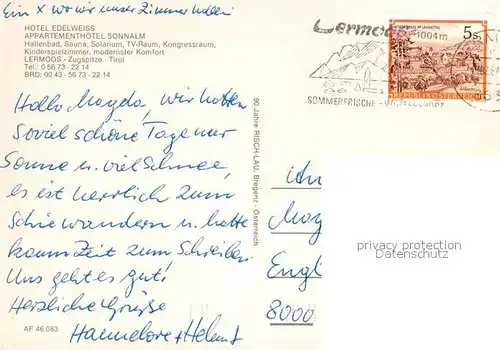 Ein X wo wir unser Zimmer haben
HOTEL EDELWEISS
APPARTEMENTHOTEL SONNALM
Hallenbad, Sauna, Solarium, TV-Raum, Kongressraum,
Kinderspielzimmer, modernster Komfort
LERMOOS - Zugspitze - Tirol
Tel.: 0 56 73 - 22 14
BRD: 00 43 - 56 73 - 22 14
Hallo Magda, wir hatten
soviel schöne Tage nur
Sonne u. viel Schnee,
es ist herrlich zum
Schiewandern u. hatte
kaum Zeit zum Schreiben
Uns geht es gut!
Herzliche Grüße
Hannelore + Helmut
AF 46.083
90 Jahre RISCH-LAU, Bregenz - Österreich
Lermoos
1004m
SOMMERFRISCHE -
5 S
REPUBLIK ÖSTERREICH
Mag
Engl
8000
privacy protection
Datenschutz